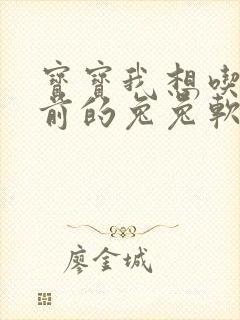 寶寶我想喫
前的兔兔軟
廖金城